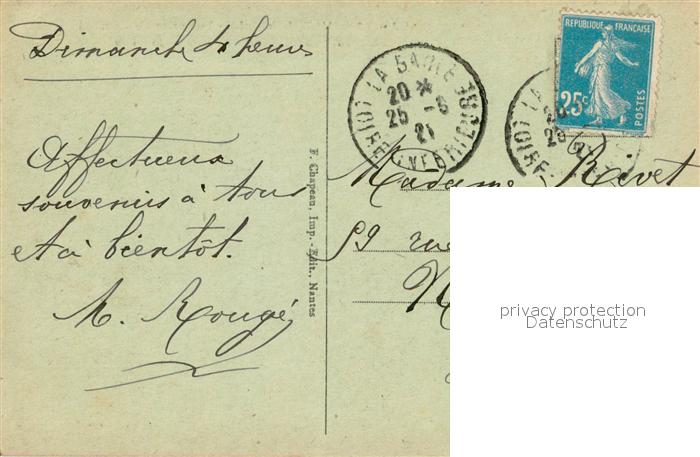 Dimanche 4 heures
Affectueux
souvenirs à tous
et à bientôt.
M. Rougé
F. Chapeau, Imp.-Edit., Nantes
LA BAULE
20 *
25 -6
21
LOIRE INFERIEURE
REPUBLIQUE FRANÇAISE
25c
POSTES
Madame Rivet
59 rue
privacy protection
Datenschutz